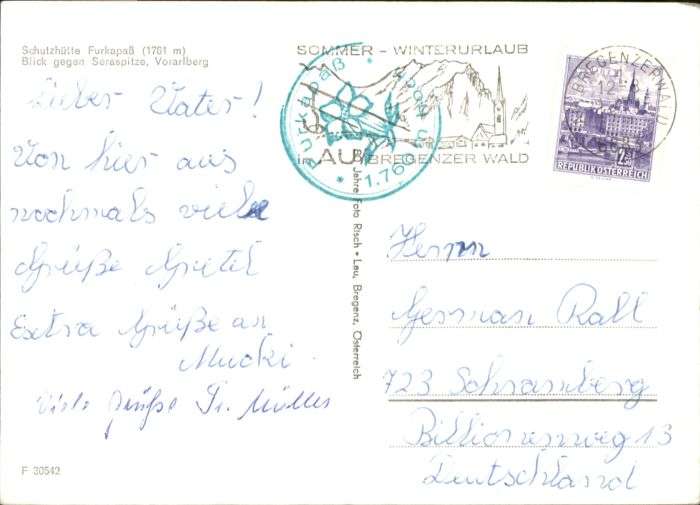 Schutzhütte Furkapaß (1761 m)
Blick gegen Seraspitze, Vorarlberg
Lieber Vater!
Von hier aus
nochmals viele
Grüße Gretel
Extra Grüße an
Mucki.
Viele Grüße Fr. Müller
F 30542
Jahre Foto Risch • Lau, Bregenz, Österreich
SOMMER - WINTERURLAUB
in AU BREGENZER WALD
Furkapaß
1.760
BREGENZERWALD
REPUBLIK ÖSTERREICH
Herrn
German Rall
723 Schramberg
13
Deutschland